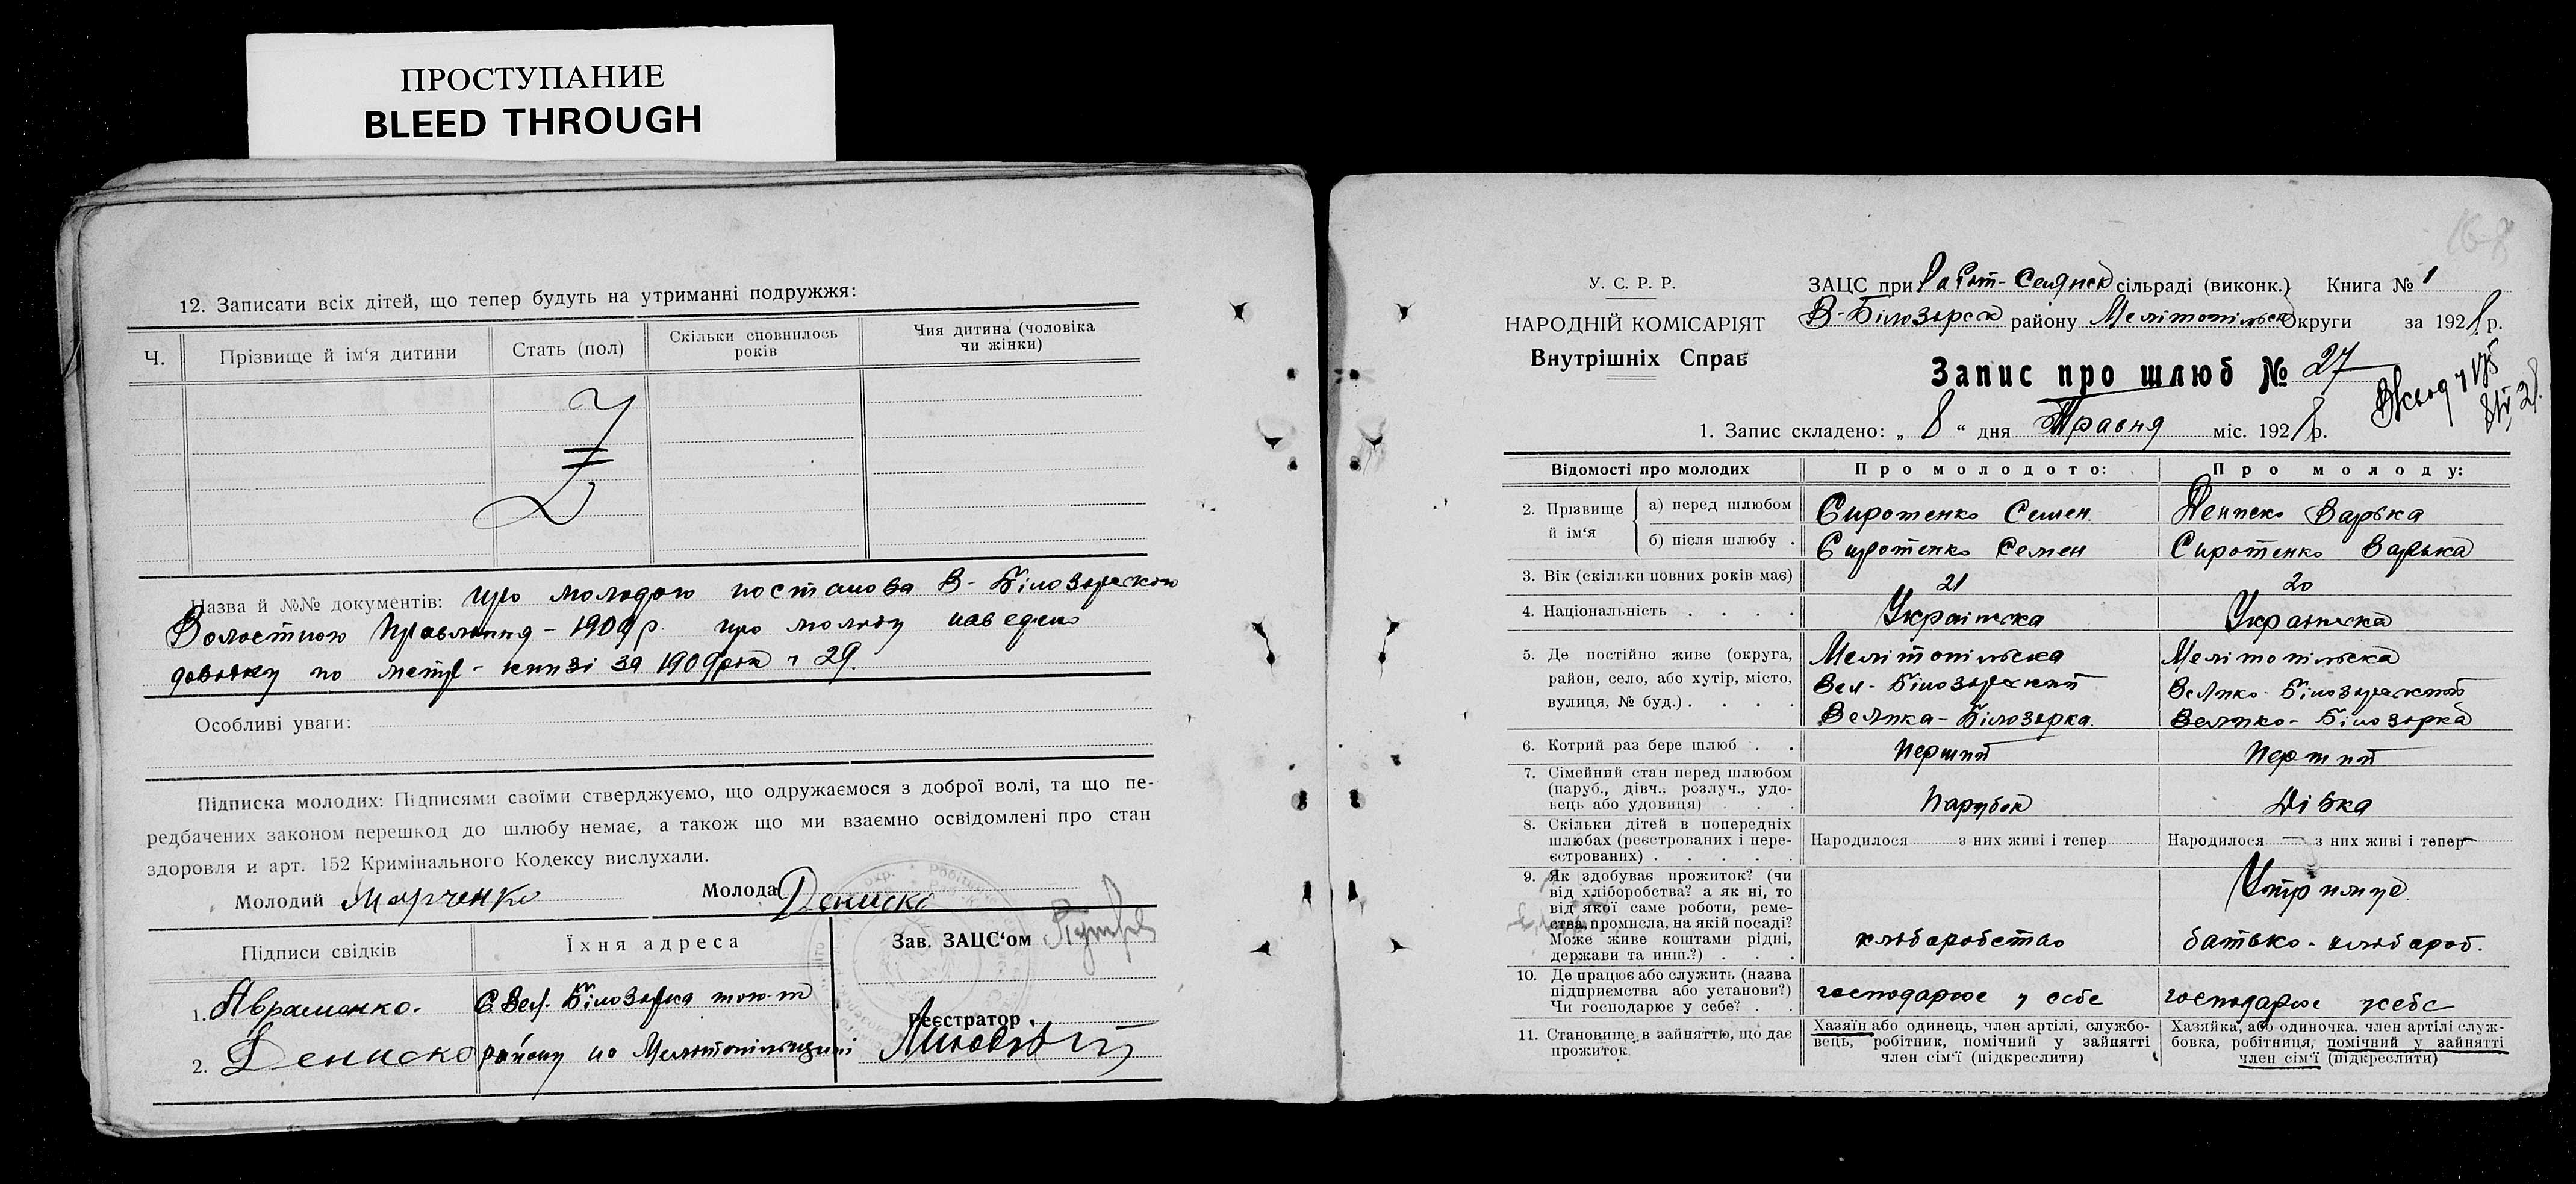 ПРОСТУПАНИЕ
BLEED THROUGH
12. Записати всіх дітей, що тепер будуть на утриманні подружжя:
Ч. Прізвище й ім'я дитини Стать (пол) Скільки сповнилось років Чия дитина (чоловіка чи жінки)
Назва й №№ документів: про молодого постанова В-Білозерского
Волостного Правління - 1909 р. про молоду наведено
довідку по метр-книзі за 1909 рік 29.
Особливі уваги:
Підписка молодих: Підписями своїми стверджуємо, що одружаємося з доброї волі, та що пе-
редбачених законом перешкод до шлюбу немає, а також що ми взаємно освідомлені про стан
здоровля и арт. 152 Кримінального Кодексу вислухали.
Молодий Марченко Молода Дениско
Підписи свідків Їхня адреса Зав. ЗАЦС'ом
1. Авраменко. С Вел. Білозерка того-ж
Реєстратор
2. Дениско району на Мелітопільщині
У. С. Р. Р.
НАРОДНІЙ КОМІСАРІЯТ
Внутрішніх Справ
ЗАЦС при Роботн-Селянск сільраді (виконк.) Книга № 1
В-Білозерск району Мелітопільск Округи за 1928 р.
Запис про шлюб № 27
1. Запис складено: „ 8 “ дня Травня міс. 1928 р.
Відомості про молодих Про молодого: Про молоду:
2. Прізвище й ім'я а) перед шлюбом Сиротенко Семен Дениско Варька
б) після шлюбу . Сиротенко Семен Сиротенко Варька
3. Вік (скільки повних років має) 21 20
4. Національність . . . . Украінска Украінска
5. Де постійно живе (округа, Мелітопільска Мелітопільска
район, село, або хутір, місто, Вел-Білозерский Велико-Білозерский
вулиця, № буд.) . . . . Велика-Білозерка. Велико-Білозерка
6. Котрий раз бере шлюб . . Перший Перший
7. Сімейний стан перед шлюбом
(паруб., дівч., розлуч., удо-
вець або удовиця) . . . Парубок Дівка
8. Скільки дітей в попередніх
шлюбах (реєстрованих і нере- Народилося з них живі і тепер Народилося — з них живі і тепер —
єстрованих) . . . . .
9. Як здобуває прожиток? (чи Утримує
від хліборобства? а як ні, то
від якої саме роботи, реме-
ства, промисла, на якій посаді?
Може живе коштами рідні, хлібаробство батько-хлібароб.
держави та инш.?) . . .
10. Де працює або служить (назва
підприємства або установи?) господарює у себе господарює у себе
Чи господарює у себе? . .
11. Становище в зайняттю, що дає Хазяїн або одинець, член артілі, службо- Хазяйка, або одиночка, член артілі служ-
прожиток. вець, робітник, помічний у зайнятті бовка, робітниця, помічний у зайнятті
член сім'ї (підкреслити) член сім'ї (підкреслити)